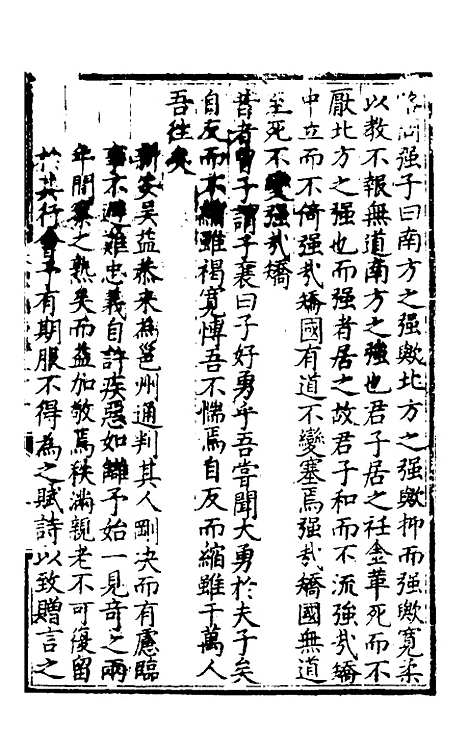 路问强子曰南方之强歟北方之强歟抑而强歟寬柔
以教不報無道南方之强也君子居之衽金革死而不
厭北方之强也而强者居之故君子和而不流強㢤矯
中立而不倚强㢤矯國有道不變塞焉强㢤矯國無道
至死不變强㢤矯
昔者曾子謂子襄曰子好勇乎吾嘗聞大勇於夫子矣
自反而不縮雖褐寬愽吾不惴焉自反而縮雖千萬人
吾往矣
新安吴益恭来為邕州通判其人剛决而有慮臨
事不避難忠義自許疾惡如讎予始一見奇之兩
年間察之熟矣而益加敬焉秩滿親老不可復留
於其行會予有期服不得為之賦詩以致贈言之